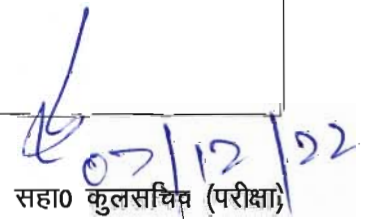 07/12/22
सहा0 कुलसचिव (परीक्षा)